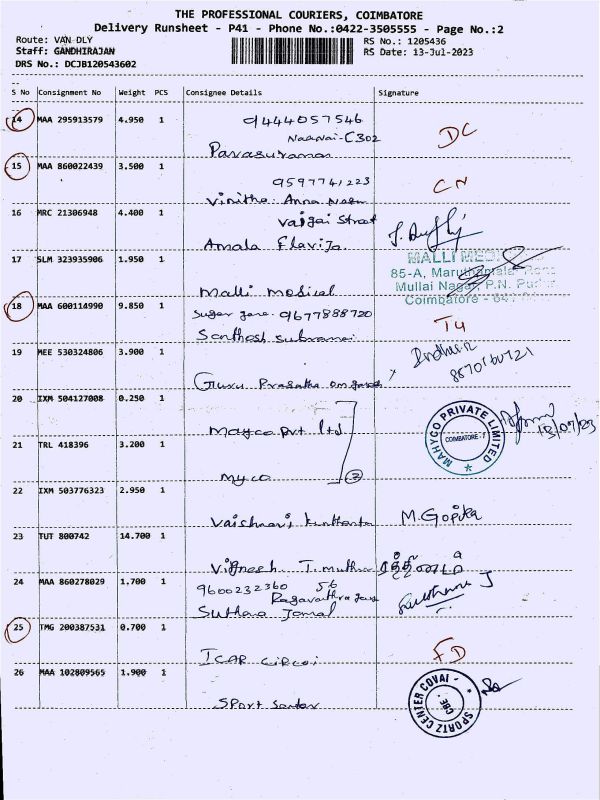 THE PROFESSIONAL COURIERS, COIMBATORE
Delivery Runsheet - P41 - Phone No.:0422-3505555 - Page No.:2
Route: VAN DLY
RS No.: 1205436
Staff: GANDHIRAJAN
RS Date: 13-Jul-2023
DRS No.: DCJB120543602
S No Consignment No Weight PCS Consignee Details Signature
14 MAA 295913579 4.950 1 9444057546
C302
DC
Parasuraman
15 MAA 860022439 3.500 1 9597741223
CN
Vinitha Anna Nagar
16 MRC 21306948 4.400 1 Vaigai Street
Amala Flavija
17 SLM 323935906 1.950 1
MALLI MEDI
85-A, Maruthamalai Road
Mullai Nagar, P.N. Pudur
Coimbatore - 641
Malli medical
18 MAA 600114990 9.850 1 Sugar 9677888720
Santhosh
19 MEE 530324806 3.900 1
Guru Prasatha
20 IXM 504127008 0.250 1
MAHYCO PRIVATE LIMITED
COIMBATORE
13/07/23
Mayco Pvt Ltd
21 TRL 418396 3.200 1
Myco
2
22 IXM 503776323 2.950 1
Vaishnavi
M. Gopika
23 TUT 800742 14.700 1
Vignesh T. Muthu
24 MAA 860278029 1.700 1 9600232360 56
J
25 TMG 200387531 0.700 1
ICAR
FD
26 MAA 102809565 1.900 1
SPORTZ CENTER COVAI
CBE
Sport